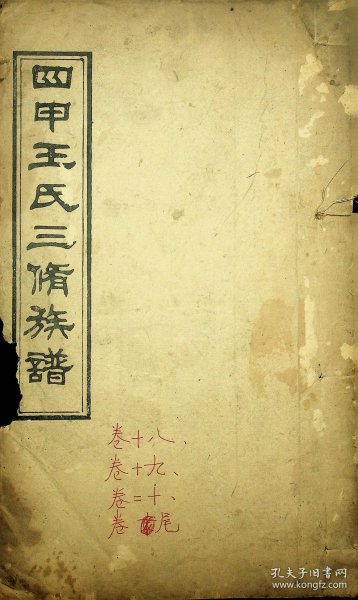 四甲王氏三脩族譜
卷十八、
卷十九、
卷二十、
卷尾
孔夫子旧书网
www.kongfz.com